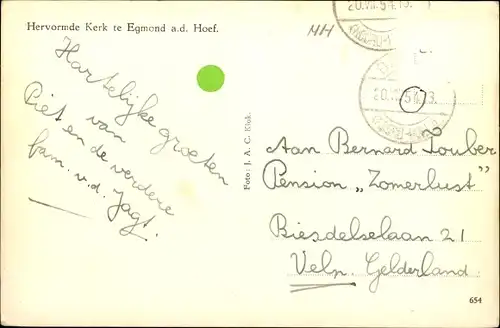 Hervormde Kerk te Egmond a.d. Hoef.
MH
20.VII.51.13.
20.VII.51.13.
Hartelijke groeten
van
Piet en de verdere
fam. v.d. Jagt.
Foto: J. A. C. Klok.
Aan Bernard Louber
Pension „Zomerlust"
Biesdelselaan 21
Velp. Gelderland.
654